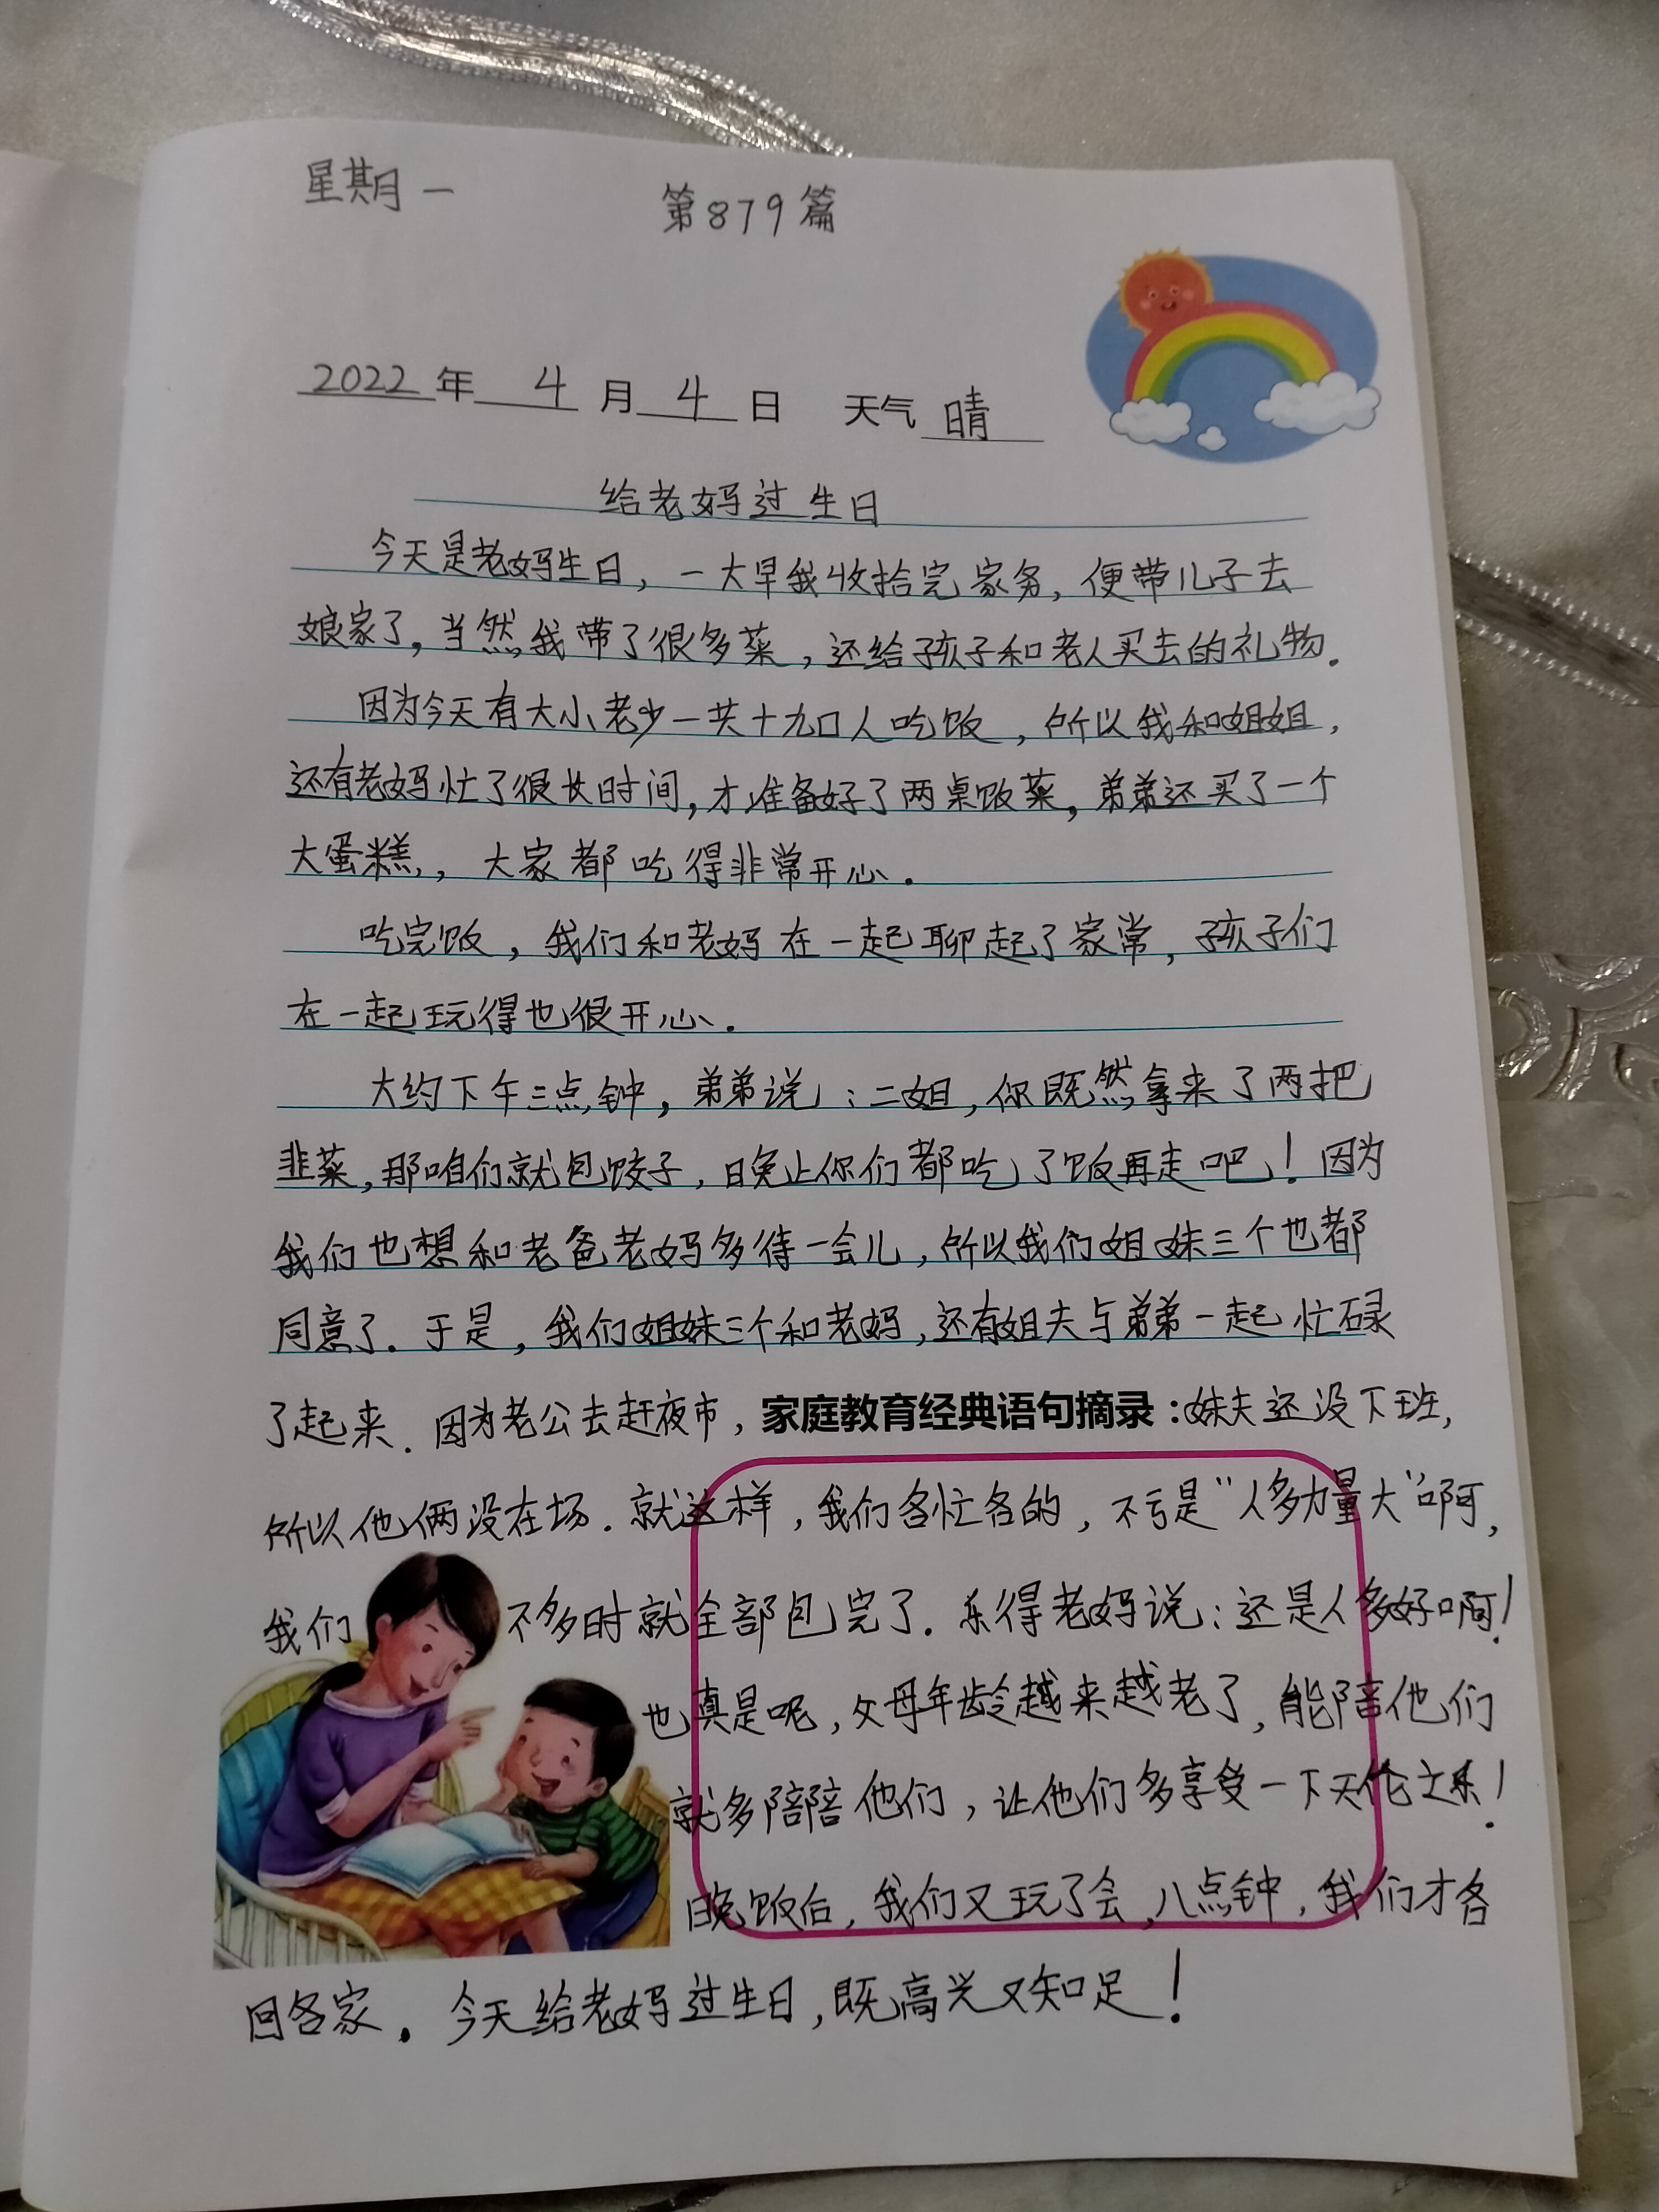 星期一 第879篇
2022年 4月4日 天气 晴
给老妈过生日
今天是老妈生日，一大早我收拾完家务，便带儿子去
娘家了，当然我带了很多菜，还给孩子和老人买去的礼物.
因为今天有大小老少一共十九口人吃饭，所以我和姐姐，
还有老妈忙了很长时间，才准备好了两桌饭菜，弟弟还买了一个
大蛋糕，，大家都吃得非常开心.
吃完饭，我们和老妈在一起聊起了家常，孩子们
在一起玩得也很开心.
大约下午三点钟，弟弟说：二姐，你既然拿来了两把
韭菜，那咱们就包饺子，晚上你们都吃了饭再走吧！因为
我们也想和老爸老妈多待一会儿，所以我们姐妹三个也都
同意了.于是，我们姐妹三个和老妈，还有姐夫与弟弟一起忙碌
了起来.因为老公去赶夜市，家庭教育经典语句摘录：妹夫还没下班，
所以他俩没在场.就这样，我们各忙各的，不亏是“人多力量大”啊，
我们不多时就全部包完了.乐得老妈说：还是人多好啊！
也真是呢，父母年龄越来越老了，能陪他们
就多陪陪他们，让他们多享受一下天伦之乐！
晚饭后，我们又玩了会，八点钟，我们才各
回各家.今天给老妈过生日，既高兴又知足！